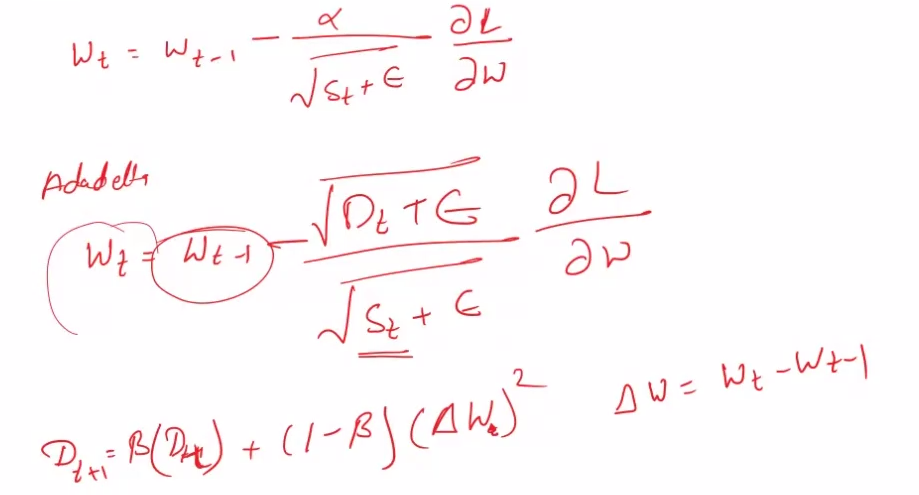 W_t = W_{t-1} - \frac{α}{\sqrt{S_t + ϵ}} \frac{∂L}{∂W}
Adadelta
W_t = W_{t-1} - \frac{\sqrt{D_t + ϵ}}{\sqrt{S_t + ϵ}} \frac{∂L}{∂W}
D_{t+1} = β(D_t) + (1-β)(ΔW_t)^2    ΔW = W_t - W_{t-1}